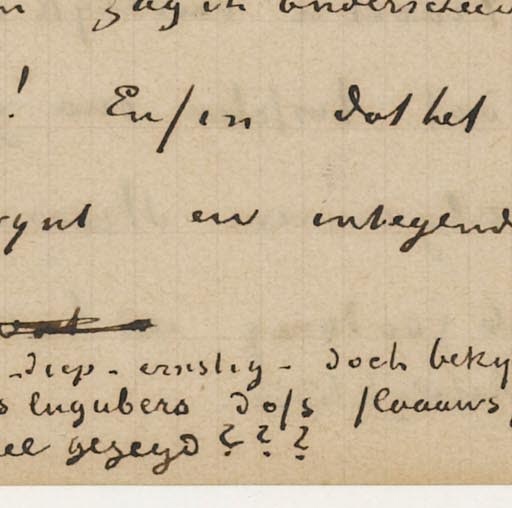 zag ik onderscheid
! Enfin dat het
en integend
diep - ernstig - doch beky
s lugubers dofs flaauws
eel gezegd ? ? ?